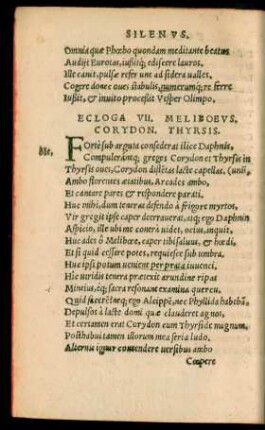 SILENVS.
Omnia quæ Phœbo quondam meditante beatus
Audijt Eurotas, iussitq; ediscere lauros.
Ille canit, pulsæ refer unt ad sidera ualles.
Cogere donec oues stabulis, numerumq; re ferre
Iussit, & inuito processit Vesper Olimpo.
ECLOGA VII. MELIBOEVS,
CORYDON, THYRSIS.
Me,
Forte sub arguta consederat ilice Daphnis,
Compulerantq; greges Corydon et Thyrsis in
Thyrsis oues, Corydon distētas lacte capellas. (unū,
Ambo florentes ætatibus, Arcades ambo,
Et cantare pares & respondere parati.
Huc mihi, dum teneras defendo à frigore myrtos,
Vir gregis ipse caper deerrauerat, atq; ego Daphnin
Aspicio, ille ubi me contrà uidet, ocius, inquit,
Huc ades ô Melibœe, caper tibi saluus, & hœdi,
Et si quid cessare potes, requiesce sub umbra.
Huc ipsi potum uenient per prata iuuenci.
Hic uirideis tenera prætexit arundine ripas
Mincius, èq; sacra resonant examina quercu.
Quid facerē? neq; ego Alcippē, nec Phyllida habebā
Depulsos à lacte domi quæ clauderet agnos.
Et certamen erat Corydon cum Thyrside magnum.
Posthabui tamen illorum mea seria ludo.
Alternis igitur contendere uersibus ambo
Cœpere